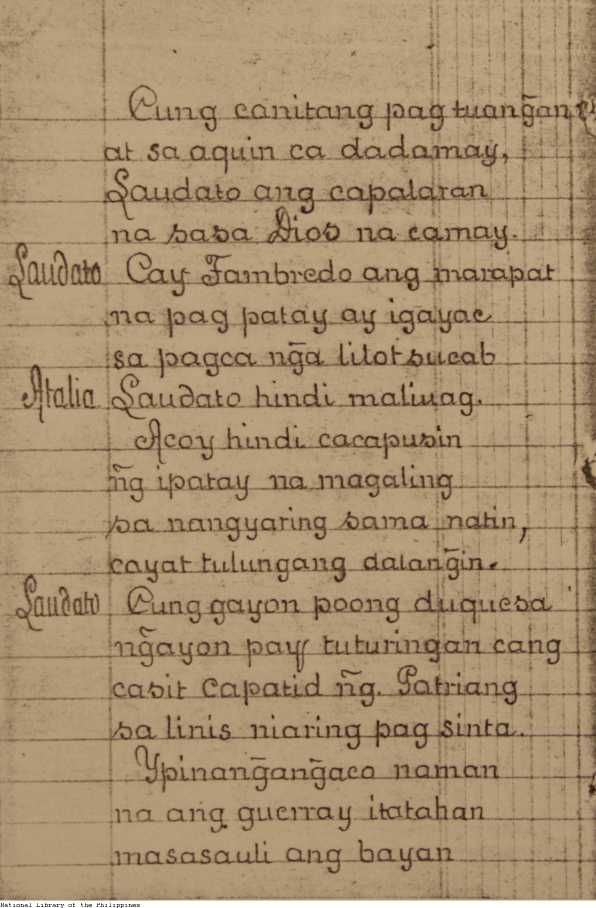 Cung canitang pag tuang̃an
at sa aquin ca dadamay,
Laudato ang capalaran
na sasa Dios na camay.
Laudato Cay Fambredo ang marapat
na pag patay ay igayac
sa pagca ng̃a lilot sucab
Atalia Laudato hindi maliuag.
Acoy hindi cacapusin
ng̃ ipatay na magaling
sa nangyaring sama natin,
cayat tulungang dalang̃in.
Laudato Cung gayon poong duquesa
ng̃ayon pay tuturingan cang
casit Capatid ng̃. Patriang
sa linis niaring pag sinta.
Ypinang̃ang̃aco naman
na ang guerray itatahan
masasauli ang bayan
National Library of the Philippines